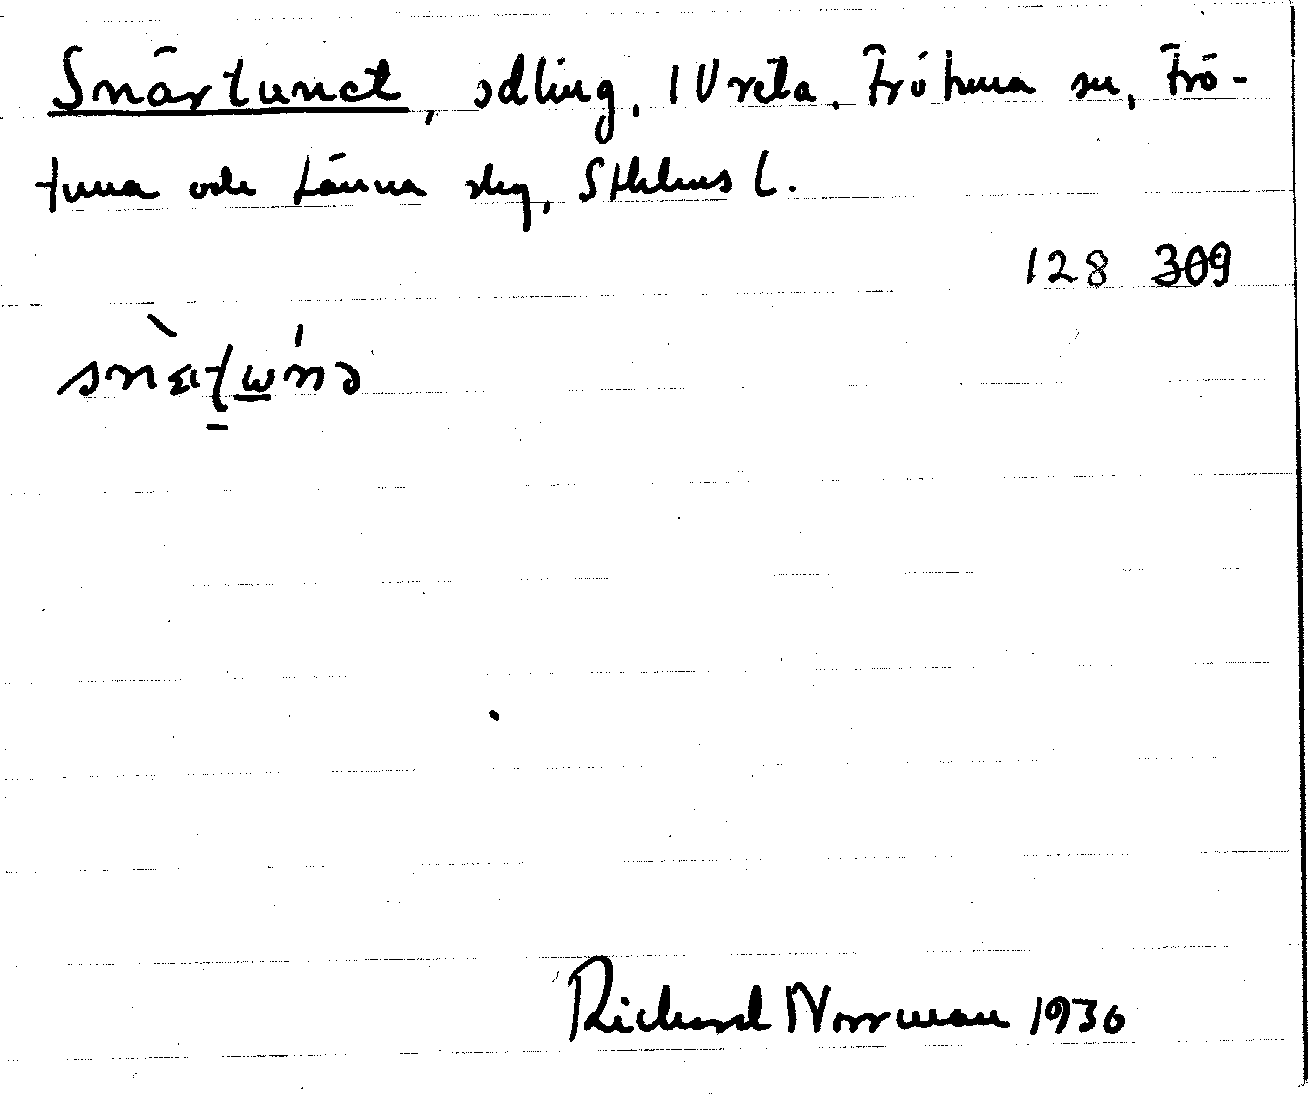 Snärtunet, odling, 1 Vreta, Frötuna sn, Frö-
tuna och Länna skg, Sthlms l.
128 309
Richard Norrman 1930